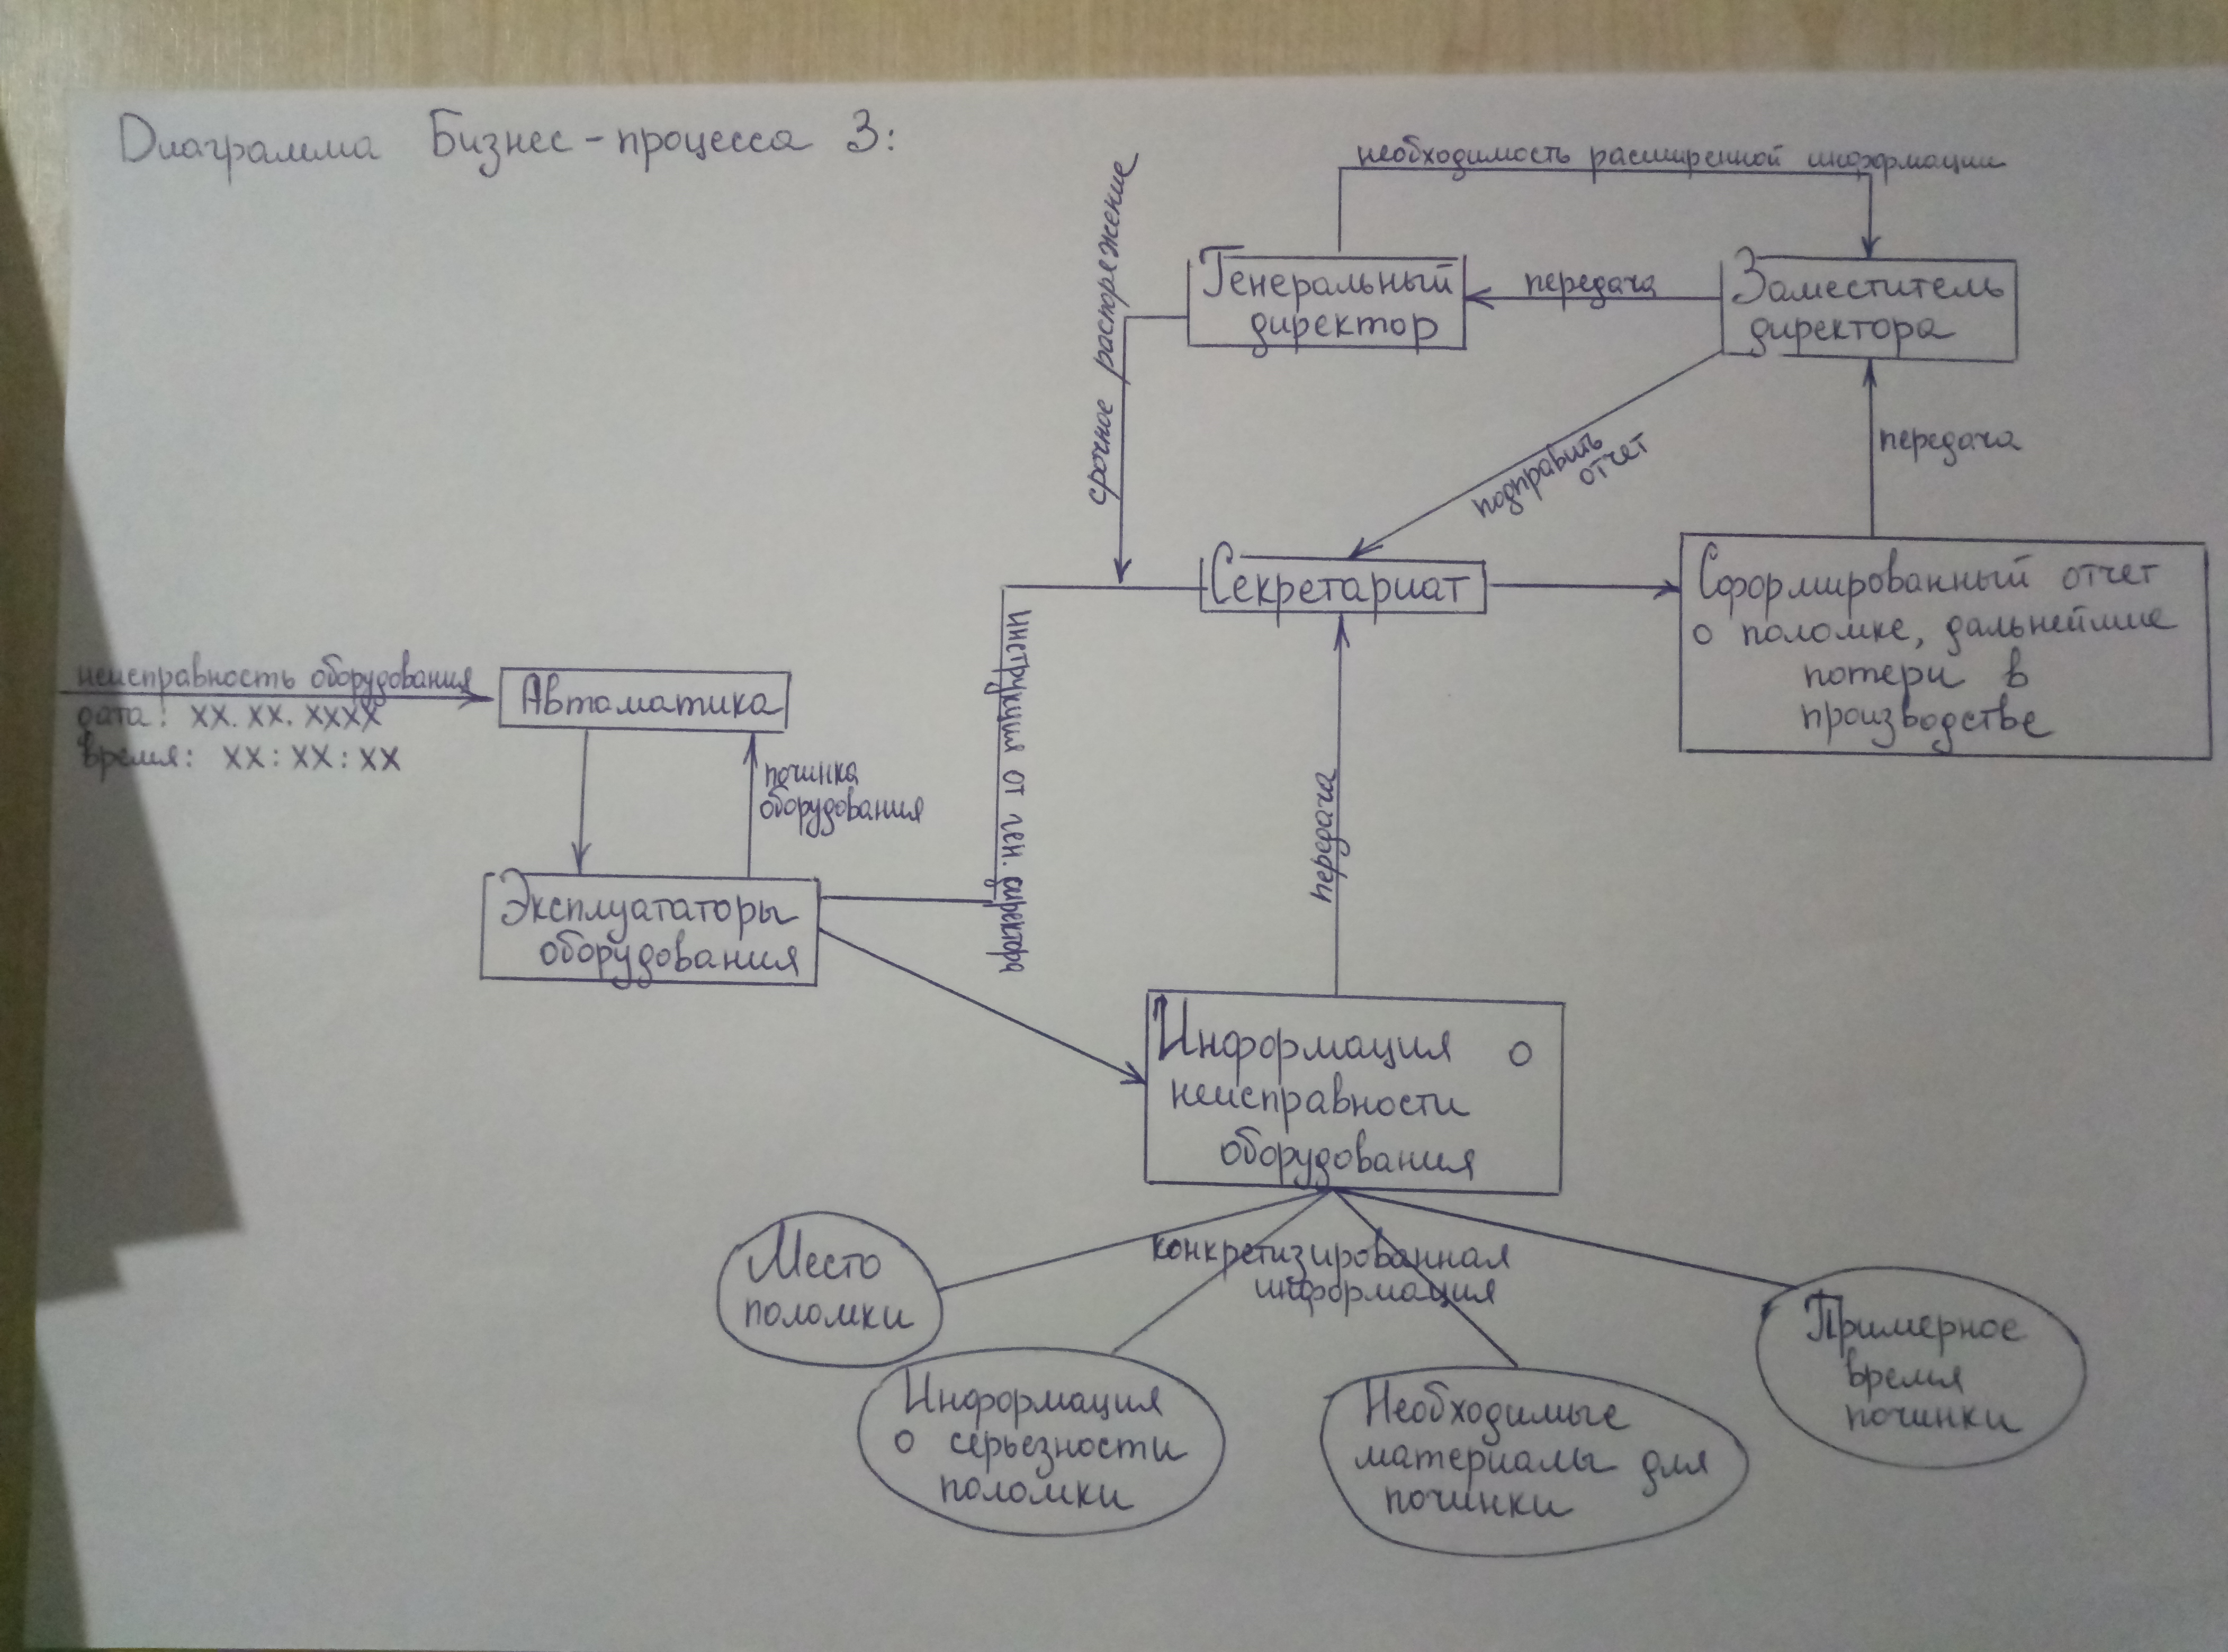 Диаграмма Бизнес-процесса 3:
необходимость расширенной информации
срочное распоряжение
Генеральный
директор
передача
Заместитель
директора
подправить
отчет
передача
Секретариат
Сформированный отчет
о поломке, дальнейшие
потери в
производстве
неисправность оборудования
дата: хх.хх.хххх
время: хх:хх:хх
Автоматика
починка
оборудования
инструкции от ген. директора
передача
Эксплуататоры
оборудования
Информация о
неисправности
оборудования
конкретизированная
информация
Место
поломки
Информация
о серьезности
поломки
Необходимые
материалы для
починки
Примерное
время
починки